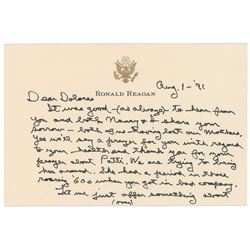 Aug. 1 - '91
RONALD REAGAN
Dear Dolores
It was good - (as always) to hear from
you and both Nancy & I share your
sorrow - both of us having lost our Mothers.
Yes we'll say a prayer for you with regard
to your health and thank you for your
prayer about Patti. We are trying to bring
her around. She had a period in those
roaring '60s when you got in bad company.
Let me just offer something about
(over)